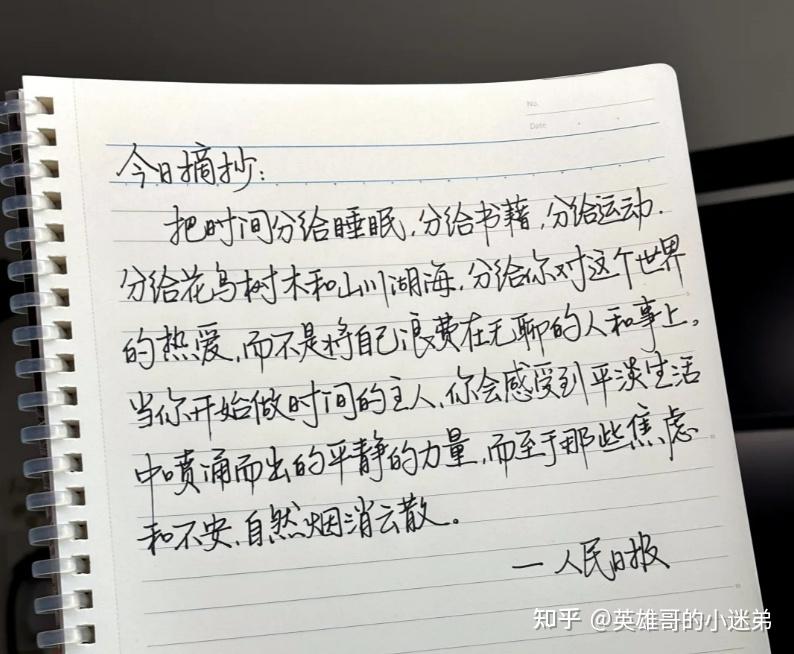 No.
Date
今日摘抄:
把时间分给睡眠,分给书籍,分给运动.
分给花鸟树木和山川湖海,分给你对这个世界
的热爱,而不是将自己浪费在无聊的人和事上。
当你开始做时间的主人,你会感受到平淡生活
中喷涌而出的平静的力量,而至于那些焦虑
和不安,自然烟消云散。
—人民日报
知乎 @英雄哥的小迷弟